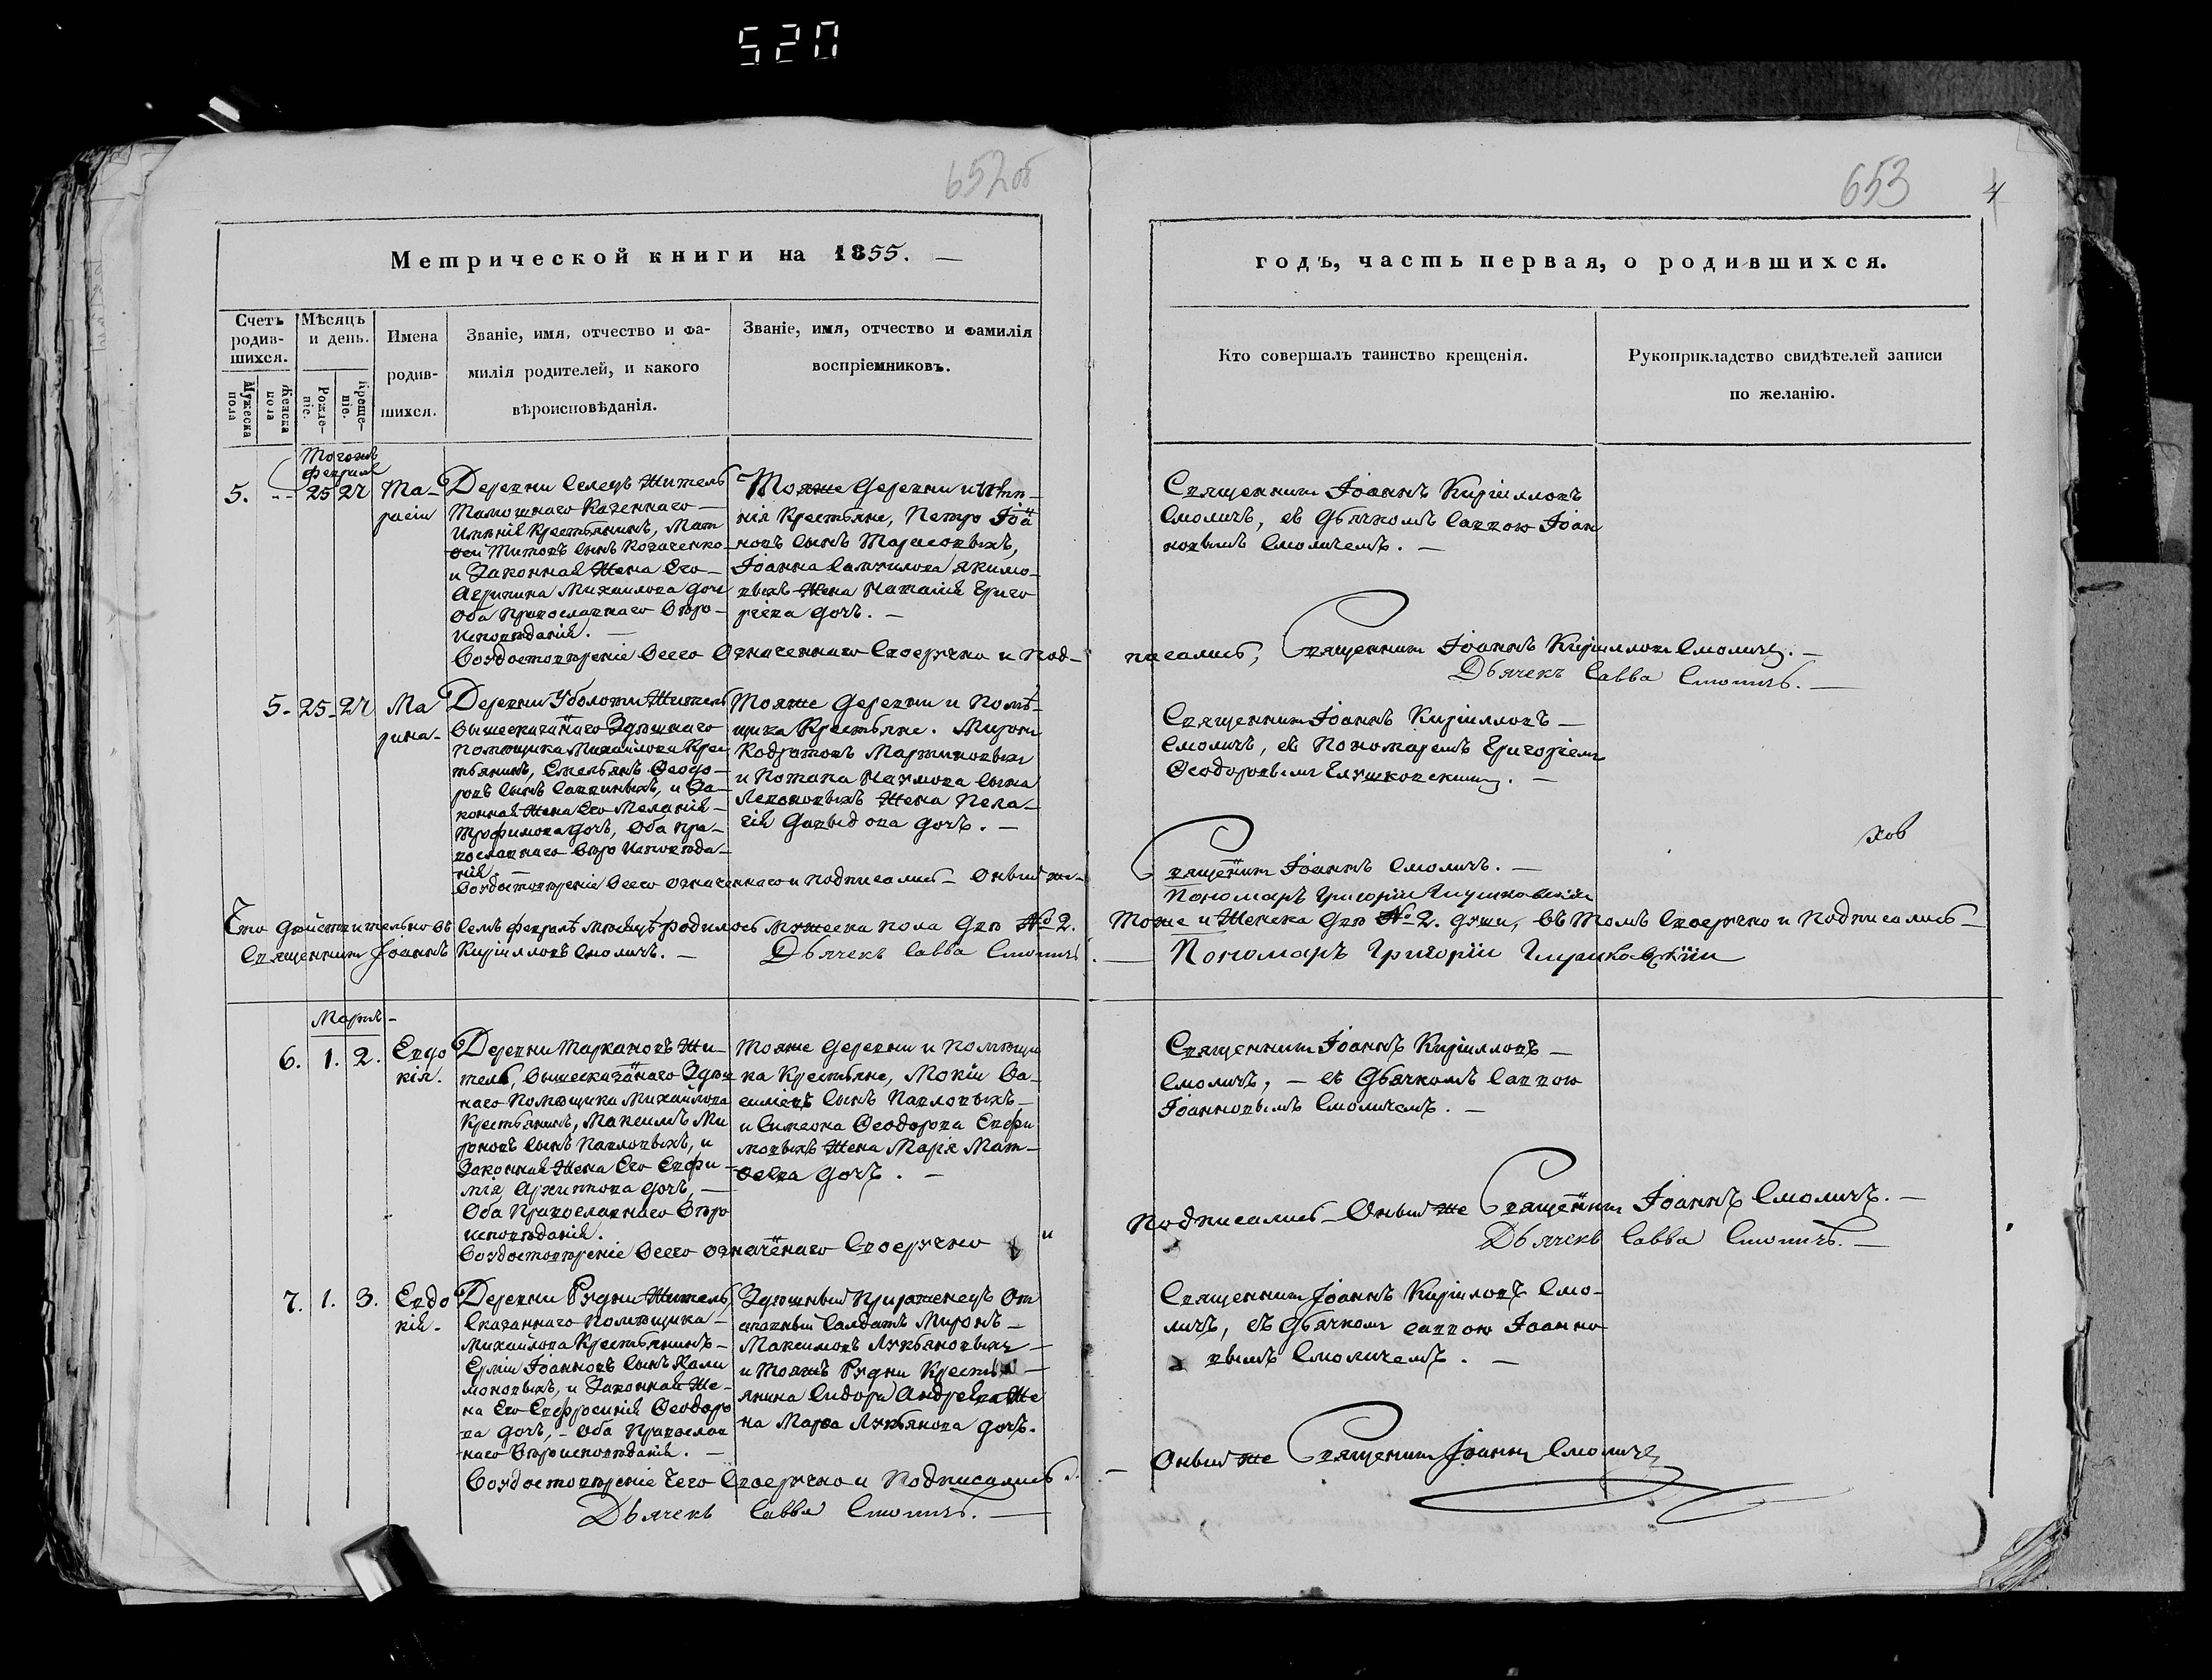 520
652об
653
4
Метрической книги на 1855. —
годъ, часть первая, о родившихся.
Счетъ родив-шихся.
Мужеска пола
Женска пола
Мѣсяцъ и день.
Рожде-ніе.
Креще-ніе.
Имена
родив-
шихся.
Званіе, имя, отчество и фа-
милія родителей, и какого
вѣроисповѣданія.
Званіе, имя, отчество и фамилія
воспріемниковъ.
Кто совершалъ таинство крещенія.
Рукоприкладство свидѣтелей записи
по желанію.
Тогожъ
февраля
5. -- 25 27
Та-
расій
Деревни Селецъ Житель
Тамошнаго Казеннаго —
Имѣнія Крестьянинъ, Мат
ѳей Титовъ Сынъ Козаченко
и Законная Жена Его —
Агрипина Михаилова дочь
Оба Православнаго Вѣро-
исповѣданія. —
Тояже Деревни и Имѣ-
нія Крестьяне, Петро Іоа
новъ Сынъ Тарасовыхъ,
Іоанна Самуилова Якимо-
выхъ Жена Наталія Григо
ріева дочь. —
Священникъ Іоаннъ Кирилловъ
Смоличъ, съ Дьячкомъ Саввою Іоан
новымъ Смоличемъ. —
Воудостовѣреніе Всего Означеннаго Своеручно и Под-
писались, Священникъ Іоаннъ Кирилловъ Смоличъ. —
Дьячекъ Савва Смоличъ. —
5 - 25 - 27
Ма
рина -
Деревни Уболоти Житель
Вышесказаннаго Здѣшнаго
Помѣщика Михайлова Крес
тьянинъ, Емельянъ Ѳеодо-
ровъ Сынъ Саввиныхъ, и За-
конная Жена Его Меланія —
Трофимова дочь, Оба пра-
вославнаго Вѣро Исповѣда-
нія. —
Тояже Деревни и Помѣ-
щика Крестьяне. Миронъ
Кодратовъ Мартиновыхъ
и Потапа Наумова Сына
Леоновыхъ Жена Пела-
гія Давыдова дочь. —
Священникъ Іоаннъ Кирилловъ —
Смоличъ, съ Пономаремъ Григоріемъ
Ѳеодоровымъ Глушковскимъ. —
Воудостовѣреніе Всего означеннаго и подписались — Оный же —
Священникъ Іоаннъ Смоличъ. —
Пономаръ Григорій Глушковскій
Что дѣйствительно въ Семъ февралѣ мѣсяцѣ родилось мужеска пола Двѣ № 2.
Тоже и Женска Двѣ № 2. души, въ томъ Своеручно и Подписались —
Священникъ Іоаннъ Кирилловъ Смоличъ. —
Дьячекъ Савва Смоличъ. —
Пономаръ Григорій Глушковскій
Мартъ -
6. 1. 2.
Евдо
кія.
Деревни Таркановъ Жи-
тель, Вышесказаннаго Здѣш
наго Помѣщика Михайлова
Крестьянинъ, Максимъ Ми
роновъ Сынъ Павловыхъ, и
Законная Жена Его Евфи-
мія Архиппова дочь, —
Оба Православнаго Вѣро
исповѣданія.
Тояже Деревни и Помѣщи
ка Крестьяне, Мокій Ва-
силіевъ Сынъ Павловыхъ —
и Симеона Ѳеодорова Евфи
мовыхъ Жена Марія Мат-
ѳеева дочь. —
Священникъ Іоаннъ Кирилловъ —
Смоличъ, — съ Дьячкомъ Саввою
Іоанновымъ Смоличемъ. —
Воудостовѣреніе Всего означеннаго Своеручно и
Подписались — Оный же Священникъ Іоаннъ Смоличъ. —
Дьячекъ Савва Смоличъ. —
7. 1. 3.
Евдо
кія -
Деревни Рудни Житель,
Сказаннаго Помѣщика —
Михайлова Крестьянинъ —
Ермій Іоанновъ Сынъ Хали
моновыхъ, и Законная Же-
на Его Евфросинія Ѳеодоро
ва дочь, — Оба Православ
наго Вѣроисповѣданія. —
Здѣшный Уроженецъ От
ставный Салдатъ Миронъ —
Максимовъ Лукьяновыхъ —
и Тояжъ Рудни Кресть —
янина Сидора Андреева Же
на Марѳа Лукьянова дочь.
Священникъ Іоаннъ Кириловъ Смо-
личъ, съ Дьячкомъ Саввою Іоанно
вымъ Смоличемъ. —
Воудостовѣреніе Чего Своеручно и Подписались. —
Оный же Священникъ Іоаннъ Смоличъ
Дьячекъ Савва Смоличъ. —